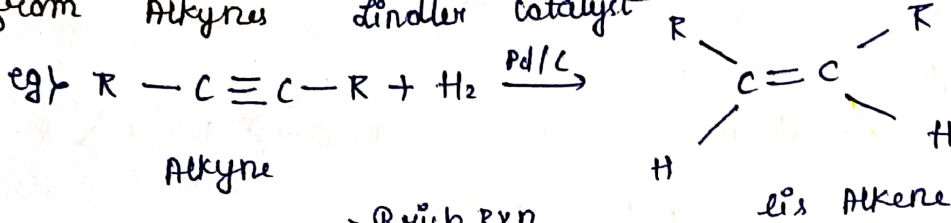 from Alkynes Lindler Catalyst
eg} R — C ≡ C — R + H2 Pd/C → R R C = C H H
Alkyne
cis Alkene
Rxn